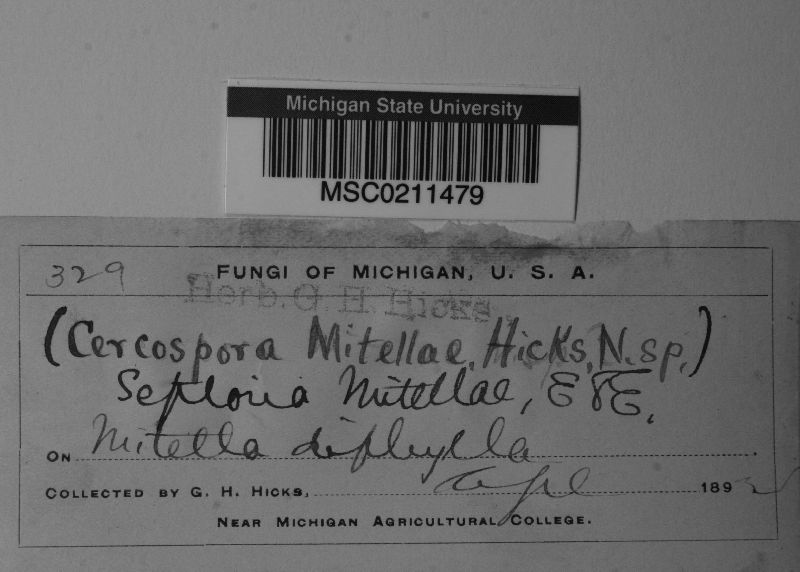 Michigan State University
MSC0211479
329 FUNGI OF MICHIGAN, U. S. A.
Herb. G. H. Hicks.
(Cercospora Mitellae, Hicks, N. sp.)
Septoria Mitellae, E & E,
ON Mitella diphylla
COLLECTED BY G. H. HICKS, 189
NEAR MICHIGAN AGRICULTURAL COLLEGE.